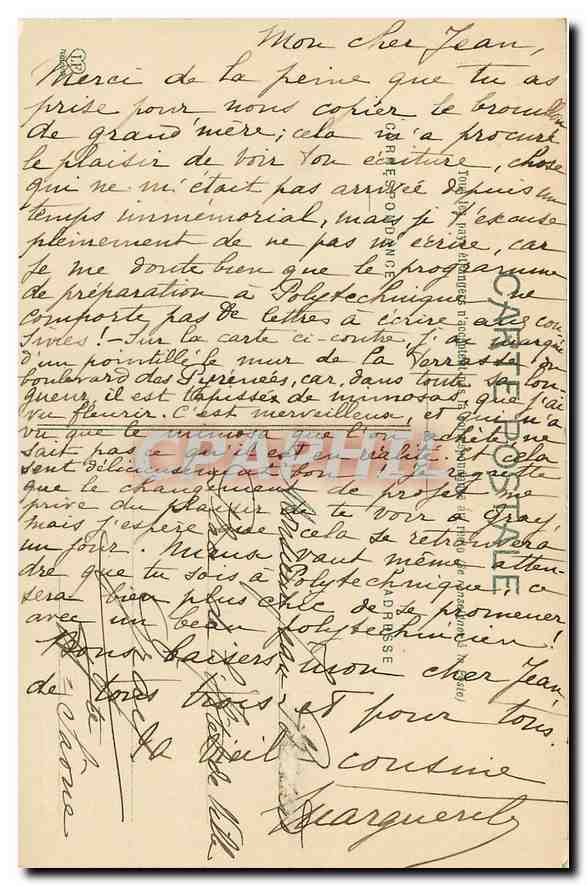 Mon cher Jean,
Merci de la peine que tu as
prise pour nous copier le brouillon
de grand'mère ; cela m'a procuré
le plaisir de voir ton écriture, chose
qui ne m'était pas arrivée depuis un
temps immémorial, mais je t'excuse
pleinement de ne pas m'écrire, car
je me doute bien que le programme
de préparation à Polytechnique ne
comporte pas de lettres à écrire aux cou-
sines ! - Sur la carte ci-contre, j'ai marqué
d'un pointillé le mur de la terrasse du
boulevard des Pyrénées, car, dans toute sa lon-
gueur, il est tapissé de mimosas, que j'ai
vu fleurir. C'est merveilleux, et qui n'a
vu que le mimosa que l'on achète, ne
sait pas ce qu'il est en réalité. Et cela
sent délicieusement bon ! Je regrette
que le changement de projet me
prive du plaisir de te voir à Gray,
mais j'espère que cela se retrouvera
un jour. Mieux vaut même atten-
dre que tu sois à Polytechnique, ce
sera bien plus chic de se promener
avec un beau polytechnicien !
Bons baisers mon cher Jean,
de tous trois et pour tous.
Ta vieille cousine
Marguerite
CARTE POSTALE
CORRESPONDANCE
ADRESSE
de l'Hôtel de Ville
Hte-Saône
CPAPHIL